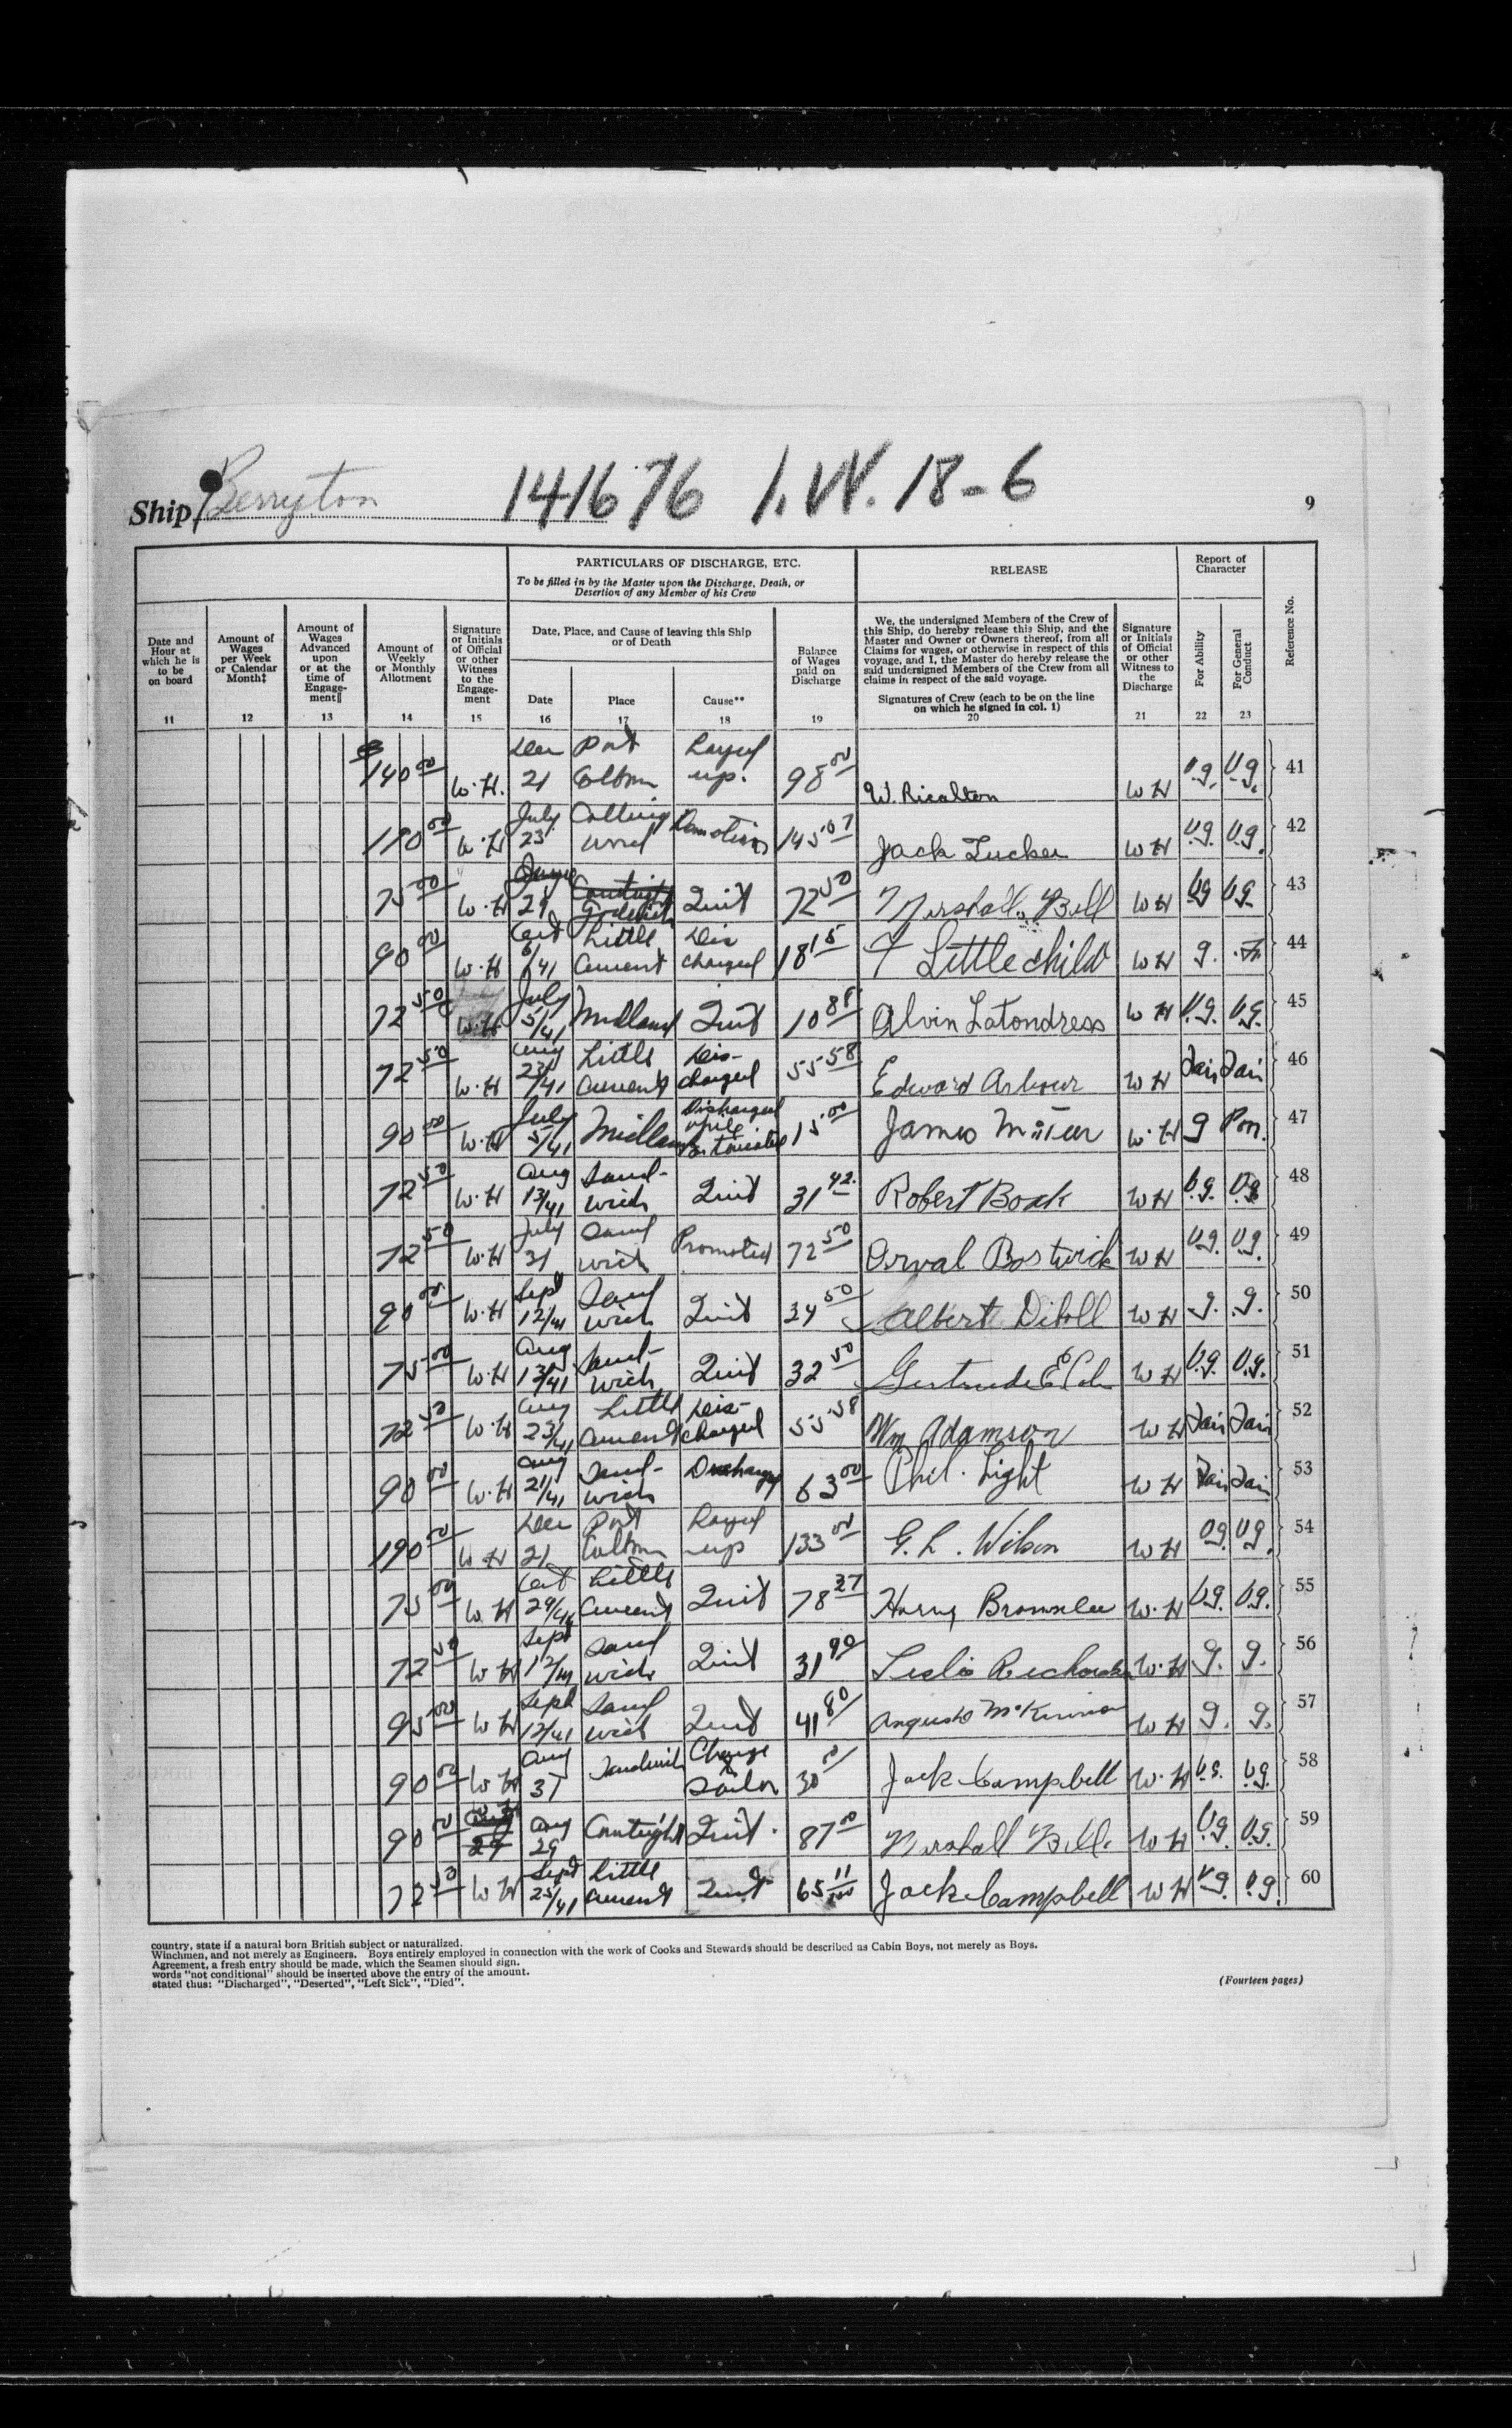 Ship Berryton 141676 1.W. 18-6
9
PARTICULARS OF DISCHARGE, ETC.
To be filled in by the Master upon the Discharge, Death, or
Desertion of any Member of his Crew
RELEASE
Report of
Character
Reference No.
Date and
Hour at
which he is
to be
on board
Amount of
Wages
per Week
or Calendar
Month‡
Amount of
Wages
Advanced
upon
or at the
time of
Engage-
ment‖
Amount of
Weekly
or Monthly
Allotment
Signature
or Initials
of Official
or other
Witness
to the
Engage-
ment
Date, Place, and Cause of leaving this Ship
or of Death
Date
Place
Cause**
Balance
of Wages
paid on
Discharge
We, the undersigned Members of the Crew of
this Ship, do hereby release this Ship, and the
Master and Owner or Owners thereof, from all
Claims for wages, or otherwise in respect of this
voyage, and I, the Master do hereby release the
said undersigned Members of the Crew from all
claims in respect of the said voyage.
Signatures of Crew (each to be on the line
on which he signed in col. 1)
Signature
or Initials
of Official
or other
Witness to
the
Discharge
For Ability
For General
Conduct
11 12 13 14 15 16 17 18 19 20 21 22 23
140 00 W.H. Dec 21 Port Colborn Layed up. 98 00 W. Ricalton W H V.g. V.g. 41
110 00 W.H July 23 Colling wood 145 07 Jack Tucker W H V.g. V.g. 42
75 00 W.H 29 Goderich Quit 72 50 Marshall Bell W H V.g V.g. 43
90 00 W.H Oct 6/41 Little Current Dis charged 18 15 F Littlechild W H g. 44
72 50 W.H July 5/41 Midland Quit 10 88 Alvin Latondress W H V.g. V.g. 45
72 50 W.H Aug 23/41 Little Current Dis- charged 55 58 Edward Arbour W H Fair Fair 46
90 00 W.H July 5/41 Midland Discharged 15 00 James W.H g 47
72 50 W.H Aug 13/41 Sand- wich Quit 31 42 Robert Boak W H V.g. V.g. 48
72 50 W.H July 31 Sand wich Promoted 72 50 Orval Bostwick W H V.g. V.g. 49
90 00 W.H Sept 12/41 Sand wich Quit 34 50 Albert W H g. g. 50
75 00 W.H Aug 13/41 Sand- wich Quit 32 50 Gertrude W H V.g. V.g. 51
72 50 W.H Aug 23/41 Little Current Dis- charged 55 58 Wm Adamson W H Fair Fair 52
90 00 W.H Aug 21/41 Sand- wich Discharge 63 00 Phil. Light W H Fair Fair 53
190 00 W H Dec 21 Port Colborn Layed up 133 00 G. L. Wilson W H V.g. V.g. 54
75 00 W.H Oct 29/41 Little Current Quit 78 37 Harry Brownlee W.H V.g. V.g. 55
72 50 W H Sept 12/41 Sand wich Quit 31 90 Leslie W.H g. g. 56
95 00 W H Sept 12/41 Sand wich Quit 41 80 Angus McKinnon W H g. g. 57
90 00 W H Aug 31 Sandwich Change to Sailor 30 00 Jack Campbell W.H V.g. V.g. 58
90 00 Aug 29 Courtright Quit. 87 00 Marshall Bell. W H V.g. V.g. 59
72 50 W H Sept 25/41 Little Current Quit 65 11/100 Jack Campbell W H V.g. V.g. 60
country, state if a natural born British subject or naturalized.
Winchmen, and not merely as Engineers. Boys entirely employed in connection with the work of Cooks and Stewards should be described as Cabin Boys, not merely as Boys.
Agreement, a fresh entry should be made, which the Seamen should sign.
words "not conditional" should be inserted above the entry of the amount.
stated thus: "Discharged", "Deserted", "Left Sick", "Died".
(Fourteen pages)